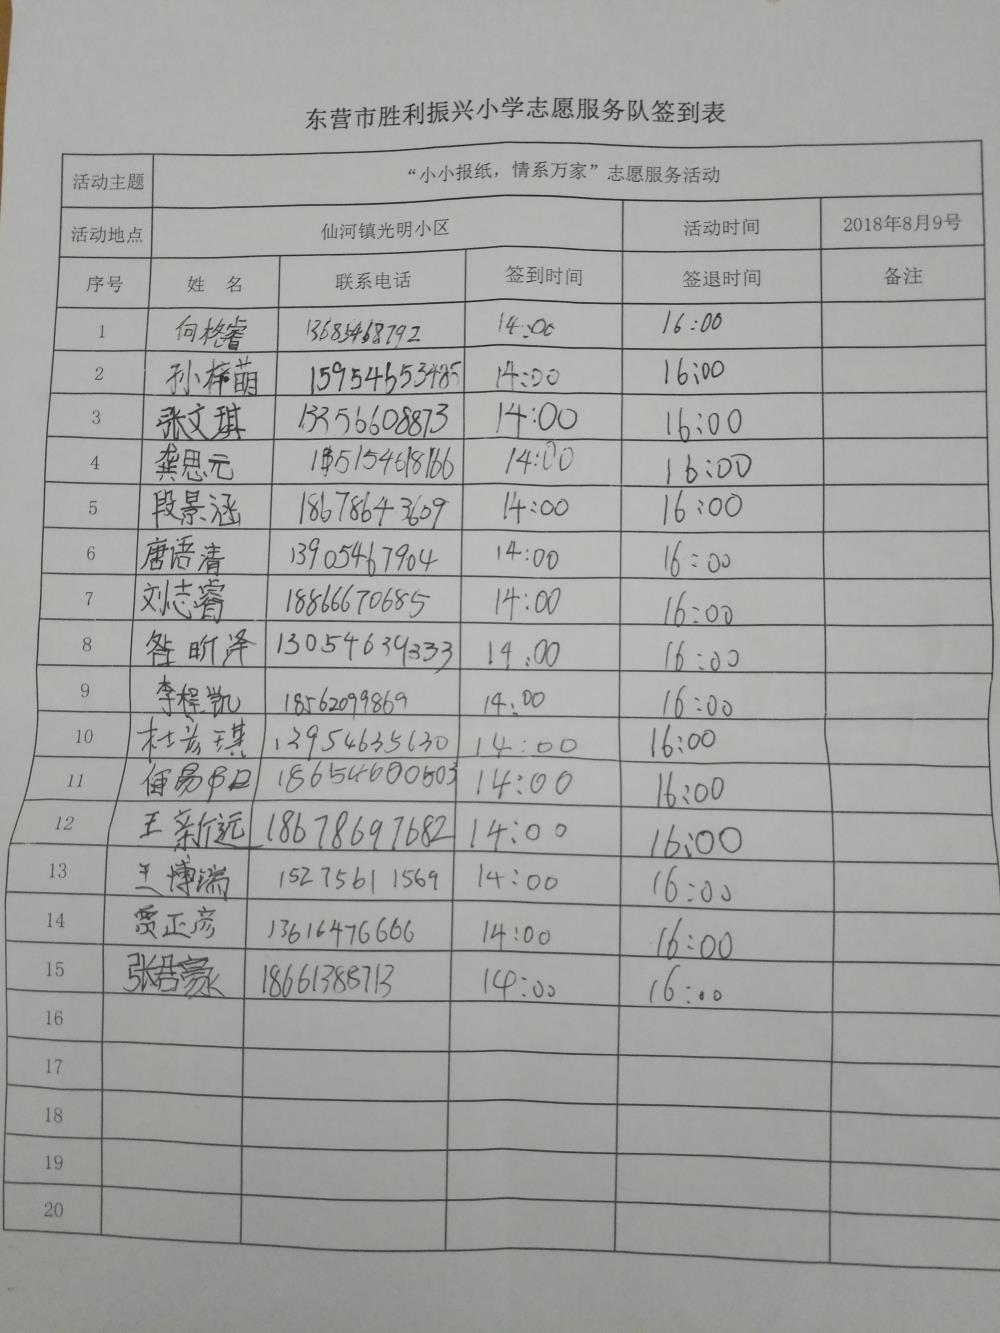 东营市胜利振兴小学志愿服务队签到表
活动主题 “小小报纸，情系万家”志愿服务活动
活动地点 仙河镇光明小区 活动时间 2018年8月9号
序号 姓 名 联系电话 签到时间 签退时间 备注
1 何格睿 13685468792 14:00 16:00
2 孙梓萌 15954653485 14:00 16:00
3 张文琪 13356608873 14:00 16:00
4 龚思元 15154618166 14:00 16:00
5 段景涵 18678643609 14:00 16:00
6 唐语清 13905467904 14:00 16:00
7 刘志睿 18866670685 14:00 16:00
8 昝昕泽 13054639333 14:00 16:00
9 李程凯 18562099869 14:00 16:00
10 13954635630 14:00 16:00
11 18654600503 14:00 16:00
12 王新远 18678697682 14:00 16:00
13 王博瑞 15275611569 14:00 16:00
14 贾正彦 13616476666 14:00 16:00
15 张君豪 18661388713 14:00 16:00
16
17
18
19
20